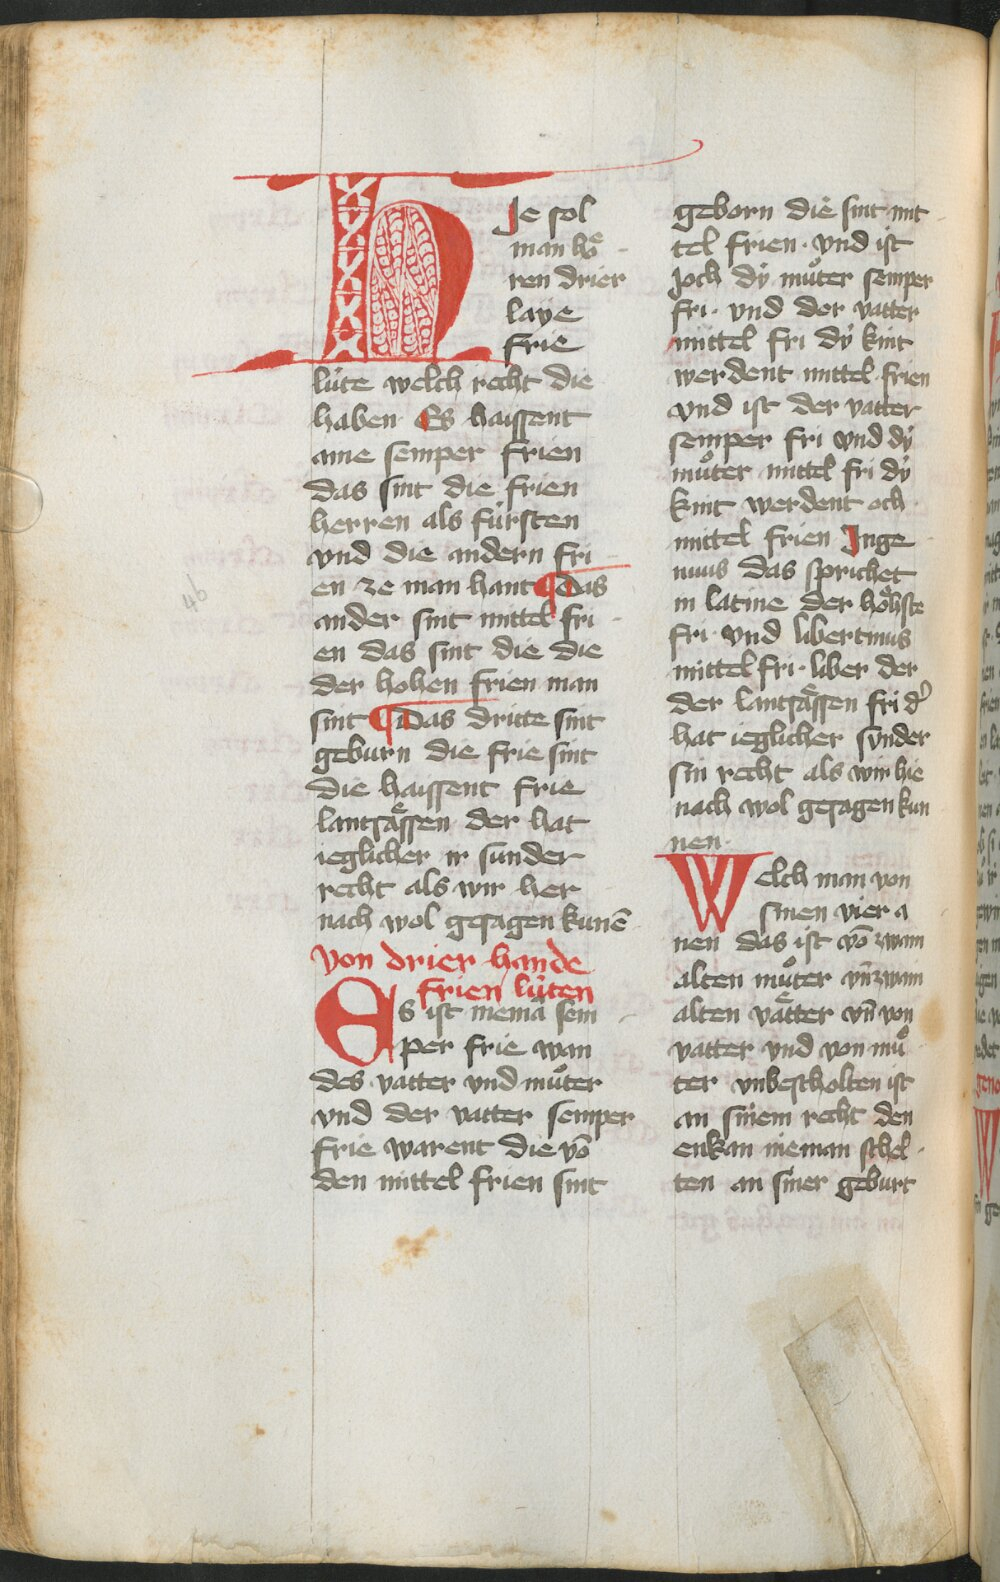 HJe sol
man hoͤ
ren drier
laye
frie
luͤte welch recht die
haben Es haissent
aine semper frien
das sint die frien
herren als fuͤrsten
vnd die andern fri
en ze man hant ¶ Das
ander sint mittel fri
en das sint die die
der hohen frien man
sint ¶ Das dritte sint
geburn die frie sint
die haissent frie
lantsaͤssen der hat
ieglicher ir sunder
recht als wir her
nach wol gesagen kunē
Von drier hande
frien luͤten
ES ist niemā sem
per frie wan
des vatter vnd muͦter
vnd der vatter semper
frie warent die vō
den mittel frien sint
geborn die sint mit
tel frien · vnd ist
joch dẏ muͦter semper
fri · vnd der vatter
mittel fri dẏ kint
werdent mittel frien
vnd ist der vatter
semper fri vnd dẏ
muͦter mittel fri dẏ
kint werdent och
mittel frien Inge
nuus das sprichet
in latine der hoͤhste
fri · vnd libertinus
mittel fri · liber der
der lantsaͤssen fri dˀ
hat ieglicher sỹnder
sin recht als wir hie
nach wol gesagen kun
nen ·
Welch man von
sinen vier a
nen das ist vō zwain
alten muͦter vn̄ zwain
alten vaͤtter vn̄ von
vatter vnd von muͦ
ter vnbescholten ist
an sinem recht den
enkan nieman schel
ten an siner geburt
46